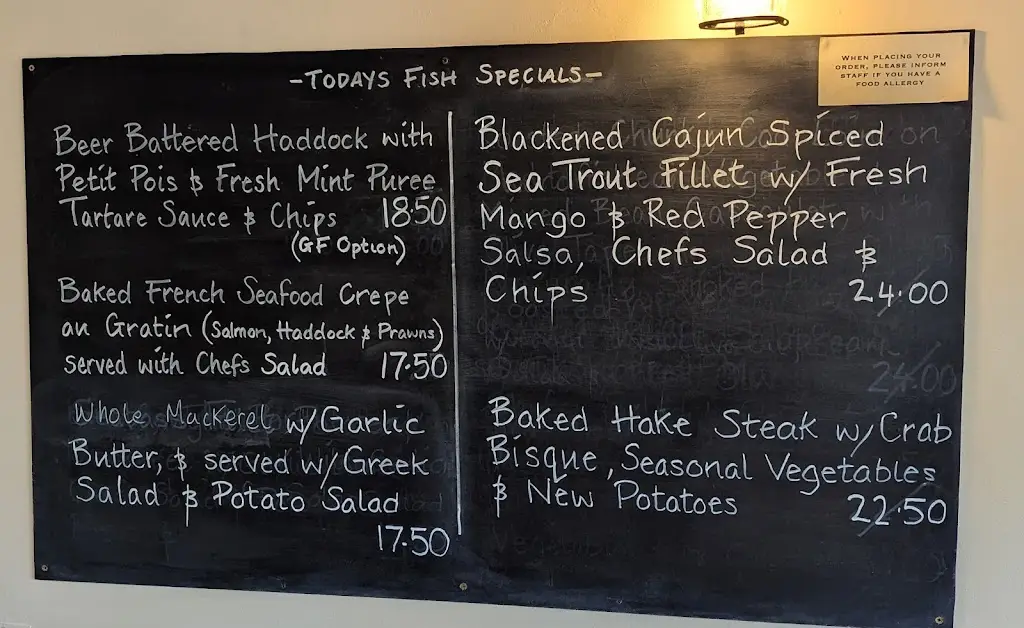 -TODAYS FISH SPECIALS-
WHEN PLACING YOUR
ORDER, PLEASE INFORM
STAFF IF YOU HAVE A
FOOD ALLERGY
Beer Battered Haddock with
Petit Pois & Fresh Mint Puree
Tartare Sauce & Chips 18.50
(GF Option)
Baked French Seafood Crepe
au Gratin (Salmon, Haddock & Prawns)
served with Chefs Salad 17.50
Whole Mackerel w/ Garlic
Butter, & served w/ Greek
Salad & Potato Salad
17.50
Blackened Cajun Spiced
Sea Trout Fillet w/ Fresh
Mango & Red Pepper
Salsa, Chefs Salad &
Chips 24.00
24.00
Baked Hake Steak w/ Crab
Bisque, Seasonal Vegetables
& New Potatoes 22.50